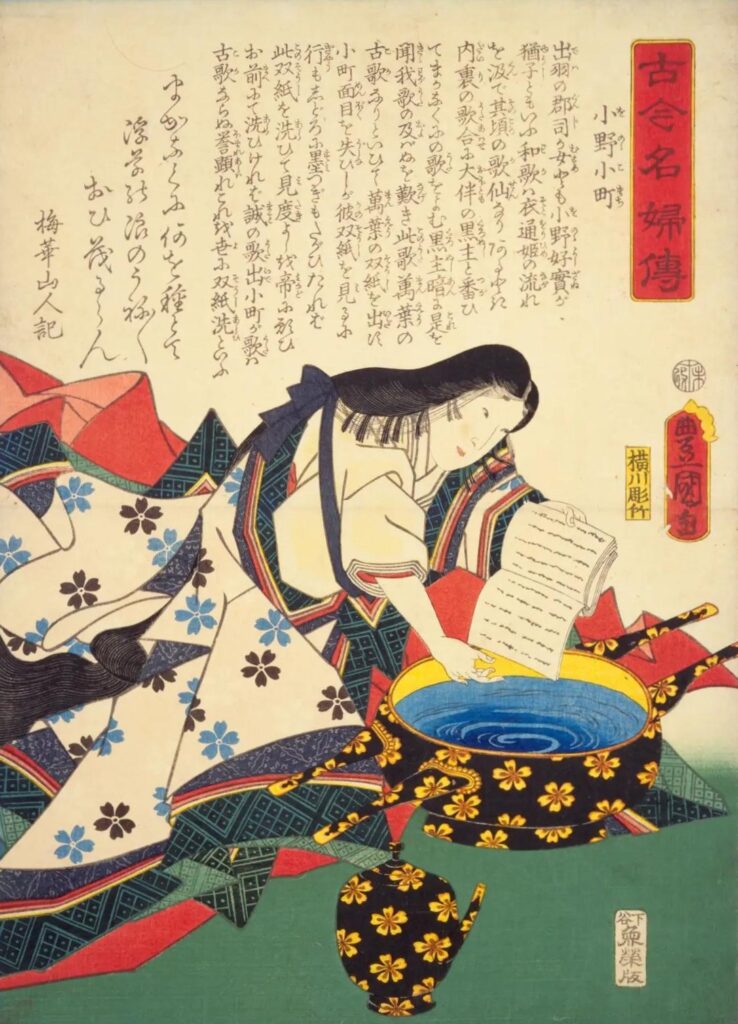 古今名婦傳
小野小町
出羽の郡司が女とも小野好實が
猶子ともいふ和歌ハ衣通姫の流れ
を汲で其頃の歌仙なり あるとき
内裏の歌合に大伴の黒主と番ひ
てまかなくにの歌をよむ黒主暗に是を
聞我歌の及バぬを歎き此歌萬葉の
古歌なりといひて萬葉の双紙を出す
小町面目を失ひしが彼双紙を見るに
行もしどろに墨つぎもたがひたれば
此双紙を洗ひて見度よしを帝に願ひ
お前にて洗ひけれバ誠の歌出小町が歌ハ
古歌ならぬ誉顕れこれを世に双紙洗といふ
まかなくに何を種とて
浮草の浪のうね〱
おひ茂るらん
梅華山人記
豊国画
横川彫竹
下谷
魚榮版